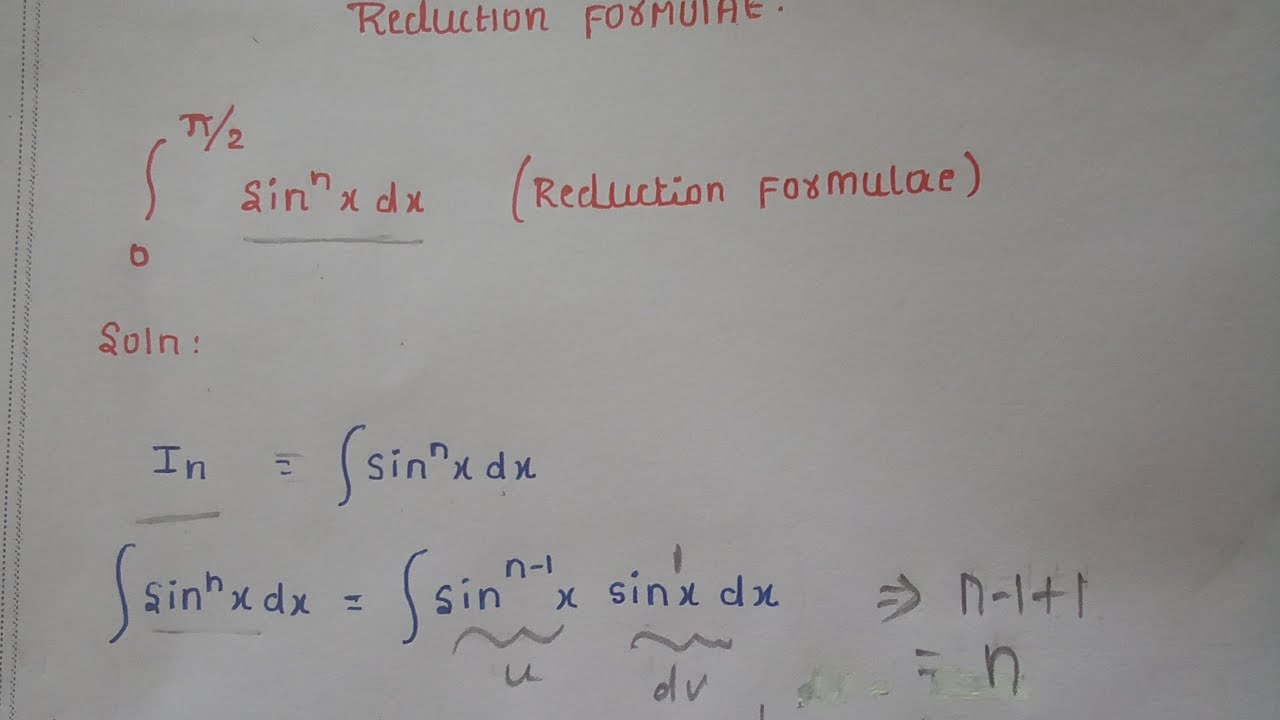 Reduction Formulae.
∫₀^π/2 sinⁿx dx (Reduction Formulae)
Soln:
In = ∫sinⁿx dx
∫sinⁿx dx = ∫sinⁿ⁻¹x sin¹x dx ⇒ n-1+1
u dv = n